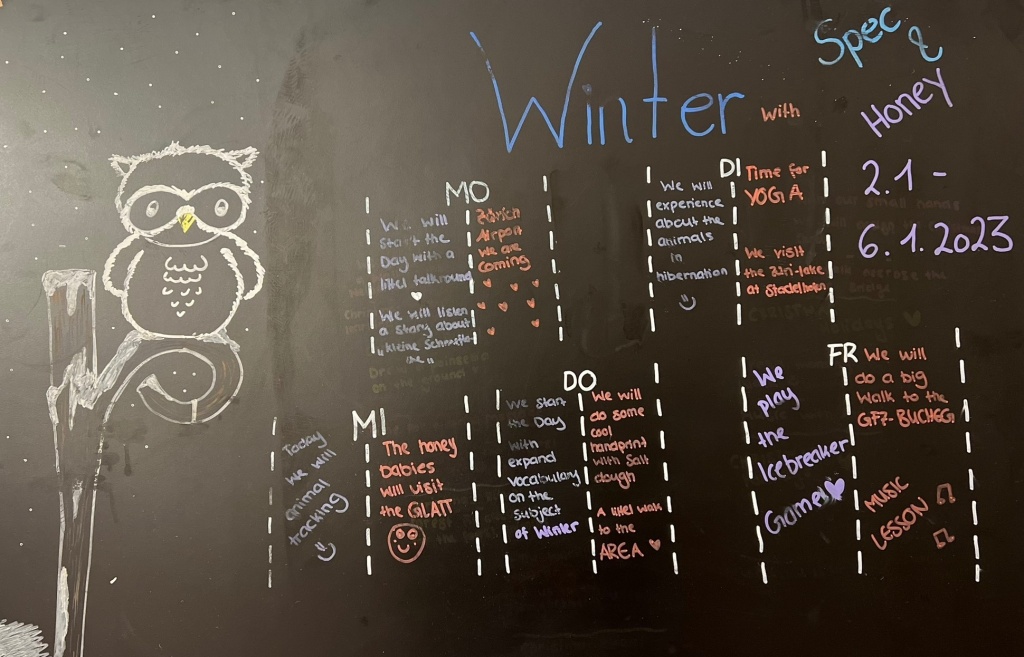 Winter with
Spec &
Honey
2.1 -
6.1.2023
MO
We will
Start the
Day with a
littel talkround
We will listen
a story about
"kleine Schneeflo
Zürich
Airport
we are
coming
DI
We will
experience
about the
animals
in
hibernation
Time for
YOGA
We visit
the Züri-lake
at Stadelhofen
MI
Today
we will
animal
tracking
The honey
babies
will visit
the GLATT
DO
We start
the Day
with
expand
vocabulary
on the
subject
of Winter
We will
do some
cool
handprint
with Salt
dough
A littel walk
to the
AREA
FR
We
play
the
Icebreaker
Game!
We will
do a big
Walk to the
GFZ-BUCHEGG
MUSIC
LESSON